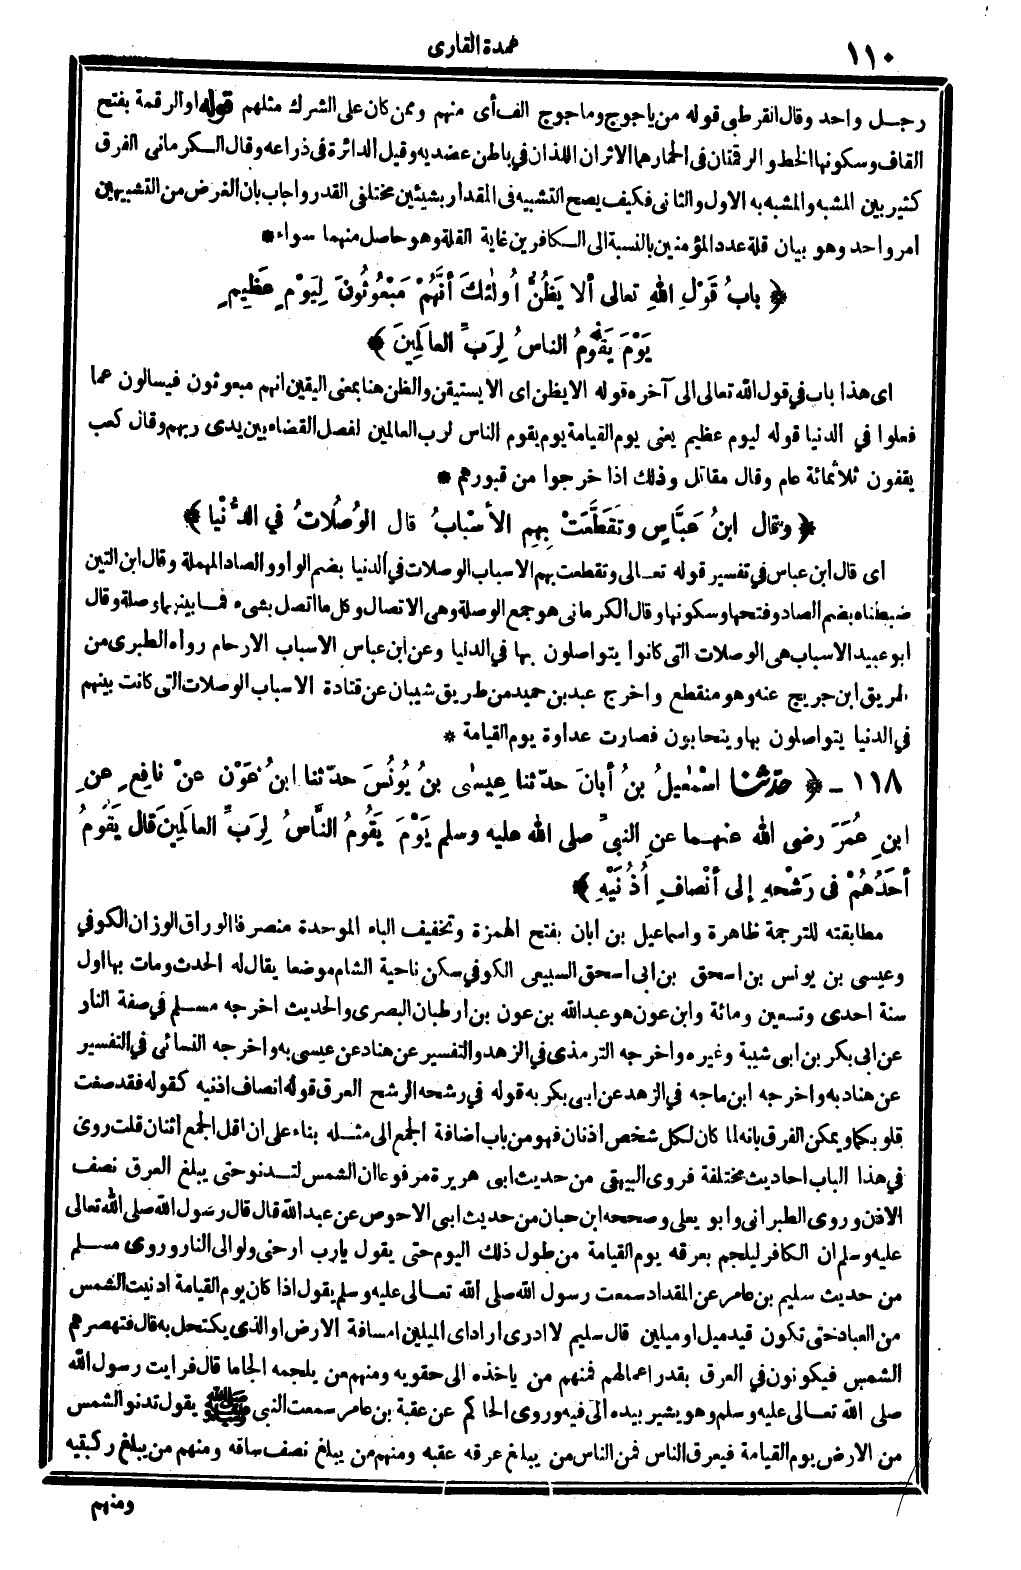 ١١٠
عمدة القارى
رجل واحد وقال القرطبى قوله من ياجوج وماجوج الف أى منهم وممن كان على الشرك مثلهم قوله او الرقمة بفتح
القاف وسكونها الخط والرقمتان فى الحمار هما الاثران اللذان في باطن عضديه وقيل الدائرة فى ذراعه وقال الكرمانى الفرق
كثير بين المشبه والمشبه به الاول والثانى فكيف يصح التشبيه فى المقدار بشيئين مختلفى القدر واجاب بان الغرض من التشبيهين
امر واحد وهو بيان قلة عدد المؤمنين بالنسبة الى الكافرين غاية القلة وهو حاصل منهما سواء *
﴿ بابُ قَوْلِ اللهِ تعالى ألا يَظُنُّ أُولٰئِكَ أنَّهُمْ مَبْعُوثُونَ لِيَوْمٍ عَظِيمٍ
يَوْمَ يَقُومُ الناسُ لِرَبِّ العالَمِينَ ﴾
اى هذا باب في قول الله تعالى الى آخره قوله الا يظن اى الا يستيقن والظن هنا بمعنى اليقين انهم مبعوثون فيسالون عما
فعلوا في الدنيا قوله ليوم عظيم يعنى يوم القيامة يوم يقوم الناس لرب العالمين لفصل القضاء بين يدى ربهم وقال كعب
يقفون ثلاثمائة عام وقال مقاتل وذلك اذا خرجوا من قبورهم *
﴿ وقال ابنُ عَبَّاسٍ وتَقَطَّعَتْ بِهِمِ الأَسْبابُ قال الوُصُلاتُ في الدُّنْيا ﴾
اى قال ابن عباس في تفسير قوله تعالى وتقطعت بهم الاسباب الوصلات في الدنيا بضم الواو والصاد المهملة وقال ابن التين
ضبطناه بضم الصاد وفتحها وسكونها وقال الكرمانى هو جمع الوصلة وهى الاتصال وكل ما اتصل بشىء فما بينهما وصلة وقال
ابو عبيد الاسباب هى الوصلات التى كانوا يتواصلون بها في الدنيا وعن ابن عباس الاسباب الارحام رواه الطبرى من
طريق ابن جريج عنه وهو منقطع واخرج عبد بن حميد من طريق شيبان عن قتادة الاسباب الوصلات التى كانت بينهم
في الدنيا يتواصلون بها ويتحابون فصارت عداوة يوم القيامة *
١١٨ ـ ﴿ حدثنا اسْمٰعِيلُ بنُ أبانَ حدّثنا عِيسٰى بنُ يُونُسَ حدّثنا ابنُ عَوْنٍ عنْ نافِعٍ عنِ
ابنِ عُمَرَ رضى الله عنهما عنِ النبىِّ صلى الله عليه وسلم يَوْمَ يَقُومُ النَّاسُ لِرَبِّ العالَمِينَ قال يَقُومُ
أحَدُهُمْ فى رَشْحِهِ إلى أنْصافِ أُذُنَيْهِ ﴾
مطابقته للترجمة ظاهرة واسماعيل بن ابان بفتح الهمزة وتخفيف الباء الموحدة منصرفا الوراق الوزان الكوفي
وعيسى بن يونس بن اسحق بن ابى اسحق السبيعى الكوفى سكن ناحية الشام موضعا يقال له الحدث ومات بها اول
سنة احدى وتسعين ومائة وابن عون هو عبدالله بن عون بن ارطبان البصرى والحديث اخرجه مسلم في صفة النار
عن ابى بكر بن ابى شيبة وغيره واخرجه الترمذى في الزهد والتفسير عن هناد عن عيسى به واخرجه النسائى في التفسير
عن هناد به واخرجه ابن ماجه في الزهد عن ابى بكر به قوله في رشحه الرشح العرق قوله انصاف اذنيه كقوله فقد صغت
قلوبكما ويمكن الفرق بانه لما كان لكل شخص اذنان فهو من باب اضافة الجمع الى مثله بناء على ان اقل الجمع اثنان قلت روى
في هذا الباب احاديث مختلفة فروى البيهقى من حديث ابى هريرة مرفوعا ان الشمس لتدنو حتى يبلغ العرق نصف
الاذن وروى الطبرانى وابو يعلى وصححه ابن حبان من حديث ابى الاحوص عن عبدالله قال قال رسول الله صلى الله تعالى
عليه وسلم ان الكافر ليلجم بعرقه يوم القيامة من طول ذلك اليوم حتى يقول يارب ارحنى ولو الى النار وروى مسلم
من حديث سليم بن عامر عن المقداد سمعت رسول الله صلى الله تعالى عليه وسلم يقول اذا كان يوم القيامة ادنيت الشمس
من العباد حتى تكون قيد ميل او ميلين قال سليم لا ادرى اراد اى الميلين امسافة الارض او الذى يكتحل به قال فتهصرهم
الشمس فيكونون في العرق بقدر اعمالهم فمنهم من ياخذه الى حقويه ومنهم من يلجمه الجاما قال فرايت رسول الله
صلى الله تعالى عليه وسلم وهو يشير بيده الى فيه وروى الحاكم عن عقبة بن عامر سمعت النبى ﷺ يقول تدنو الشمس
من الارض يوم القيامة فيعرق الناس فمن الناس من يبلغ عرقه عقبه ومنهم من يبلغ نصف ساقه ومنهم من يبلغ ركبتيه
ومنهم